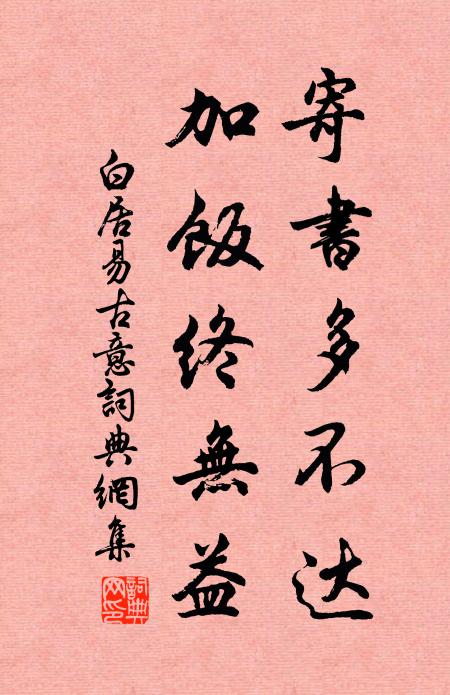 寄書多不达
加飯終無益
白居易古意詞典網集
詞典网印